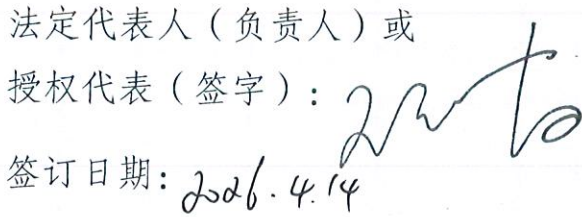 法定代表人（负责人）或
授权代表（签字）：
签订日期：2026.4.14